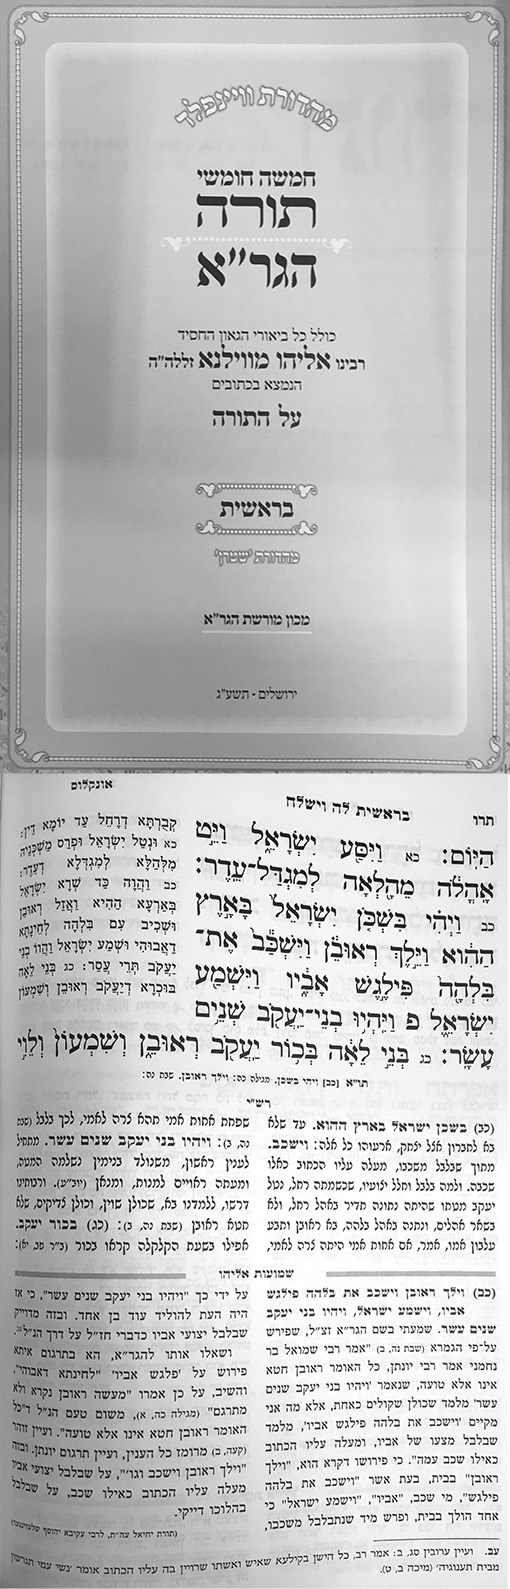 מהדורת וויינפלד
חמשה חומשי
תורה
הגר״א
כולל כל ביאורי הגאון החסיד
רבינו אליהו מווילנא זללה״ה
הנמצא בכתובים
על התורה
בראשית
מהדורת 'שטרן'
מכון מורשת הגר״א
ירושלים - תשע״ג
תרו בראשית לה וישלח אונקלוס
הַיּוֹם: כא וַיִּסַּע יִשְׂרָאֵל וַיֵּט
אָהֳלֹה מֵהָלְאָה לְמִגְדַּל־עֵדֶר:
כב וַיְהִי בִּשְׁכֹּן יִשְׂרָאֵל בָּאָרֶץ
הַהִוא וַיֵּלֶךְ רְאוּבֵן וַיִּשְׁכַּב אֶת־
בִּלְהָה פִּילֶגֶשׁ אָבִיו וַיִּשְׁמַע
יִשְׂרָאֵל פ וַיִּהְיוּ בְנֵי־יַעֲקֹב שְׁנֵים
עָשָׂר: כג בְּנֵי לֵאָה בְּכוֹר יַעֲקֹב רְאוּבֵן וְשִׁמְעוֹן וְלֵוִי
קְבֻרְתָּא דְרָחֵל עַד יוֹמָא דֵין:
כא וּנְטַל יִשְׂרָאֵל וּפְרַס מַשְׁכְּנֵיהּ
מִלְּהָלָּא לְמִגְדְּלָא דְעֵדֶר:
כב וַהֲוָה כַּד שְׁרָא יִשְׂרָאֵל
בְּאַרְעָא הַהִיא וַאֲזַל רְאוּבֵן
וּשְׁכֵיב עִם בִּלְהָה לְחֵינָתָא
דַאֲבוּהִי וּשְׁמַע יִשְׂרָאֵל וַהֲווֹ בְנֵי
יַעֲקֹב תְּרֵי עֲסַר: כג בְּנֵי לֵאָה
בּוּכְרָא דְיַעֲקֹב רְאוּבֵן וְשִׁמְעוֹן
תו״א [כב] ויהי בשכן. מגילה כה: וילך ראובן. שבת נה:
רש״י
(כב) בשכן ישראל בארץ ההוא. עד שלא
בא לחברון אצל יצחק, ארעוהו כל אלה: וישכב.
מתוך שבלבל משכבו, מעלה עליו הכתוב כאלו
שכבה. ולמה בלבל וחלל יצועיו, שכשמתה רחל, נטל
יעקב מטתו שהיתה נתונה תדיר באהל רחל, ולא
בשאר אהלים, ונתנה באהל בלהה, בא ראובן ותבע
עלבון אמו, אמר, אם אחות אמי היתה צרה לאמי,
שפחת אחות אמי תהא צרה לאמי, לכך בלבל (שבת
נה, ב): ויהיו בני יעקב שנים עשר. מתחיל
לענין ראשון, משנולד בנימין נשלמה המטה,
ומעתה ראויים למנות, ומנאן (יוב״ע). ורבותינו
דרשו, ללמדנו בא, שכולן שוין, וכולן צדיקים, שלא
חטא ראובן (שבת נה, ב): (כג) בכור יעקב.
אפילו בשעת הקלקלה קראו בכור (ב״ר פב, יא):
שמועות אליהו
(כב) וילך ראובן וישכב את בלהה פילגש
אביו, וישמע ישראל, ויהיו בני יעקב
שנים עשר. שמעתי בשם הגר״א זצ״ל, שפירש
על־פי הגמרא (שבת נה, ב) ״אמר רבי שמואל בר
נחמני אמר רבי יונתן, כל האומר ראובן חטא
אינו אלא טועה, שנאמר ׳ויהיו בני יעקב שנים
עשר׳ מלמד שכולן שקולים כאחת, אלא מה אני
מקיים ׳וישכב את בלהה פילגש אביו׳, מלמד
שבלבל מצעו של אביו, ומעלה עליו הכתוב
כאילו שכב עמה״. כי פירושו דקרא הוא, ״וילך
ראובן״ בבית, בעת אשר ״וישכב את בלהה
פילגש״, מי שכב, ״אביו״, ״וישמע ישראל״ כי
אחד הולך בבית, ופרש מיד שנתבלבל משכבו,
על ידי כך ״ויהיו בני יעקב שנים עשר״, כי אז
היה העת להוליד עוד בן אחד. ובזה מדוייק
שבלבל יצועי אביו כדברי חז״ל על דרך הנ״ל.
ושאלו אותו להגר״א, הא בתרגום איתא
פירוש על ׳פלגש אביו׳ ״לחינתא דאבוהי״,
והשיב, על כן אמרו ״מעשה ראובן נקרא ולא
מתרגם״ (מגילה כה, א), משום טעם הנ״ל ד״כל
האומר ראובן חטא אינו אלא טועה״. ועיין זוהר
(קעה, ב) מרומז כל הענין, ועיין תרגום יונתן. ובזה
״וילך ראובן וישכב וגו׳״, על שבלבל יצועי אביו
מעלה עליו הכתוב כאילו שכב, על שבלבל
בהלוכו דייקי.
(תורת יחיאל עה״ת, לרבי עקיבא יהוסף שלעזינגער)
עב. ועיין ערובין סג, ב: אמר רב, כל הישן בקילעא שאיש ואשתו שרויין בה עליו הכתוב אומר ׳נשי עמי תגרשון
מבית תענוגיה׳ (מיכה ב, ט).